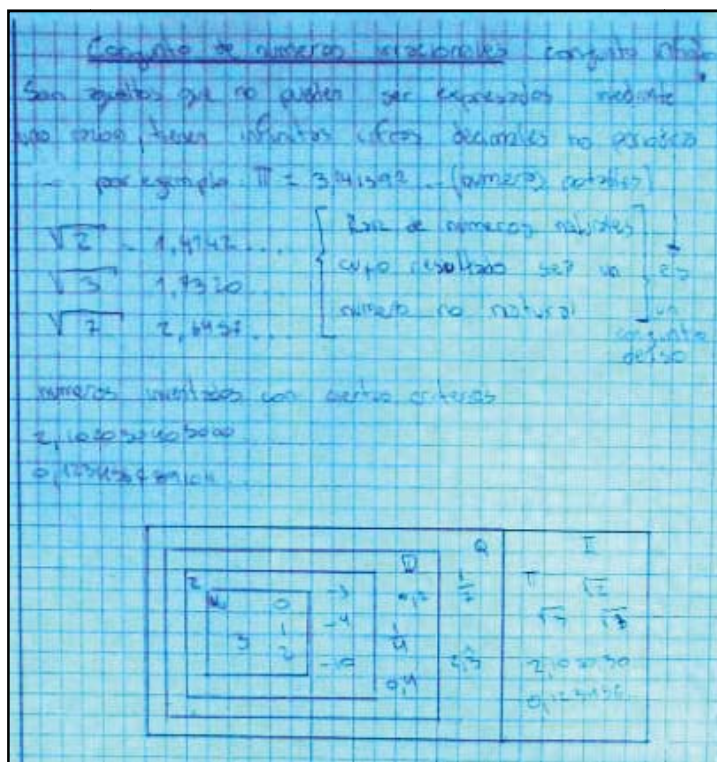 Conjunto de números irracionales conjunto infinito
Son aquellos que no pueden ser expresados mediante
una razon, tienen infinitas cifras decimales no periódica
- por ejemplo π = 3,141592 ... (números notables)
√2 - 1,4142...
√3 1,7320...
√7 2,6457...
Raíz de números naturales
cuyo resultado sea un
número no natural
es
un
conjunto
denso
números inventados con ciertos criterios
2,102030405000
0,1234567891011...
Z N 0 1 2 3
-3 -4 -10
D 1/4 0,4
Q
I π √2
√3 √7
2,102030
0,123456